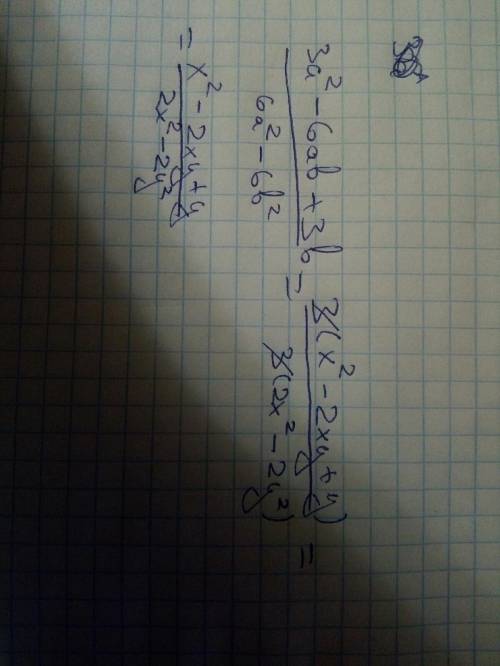 3a² - 6ab + 3b / 6a² - 6b² = 3(x² - 2xy + y) / 3(2x² - 2y²) =
= x² - 2xy + y / 2x² - 2y²